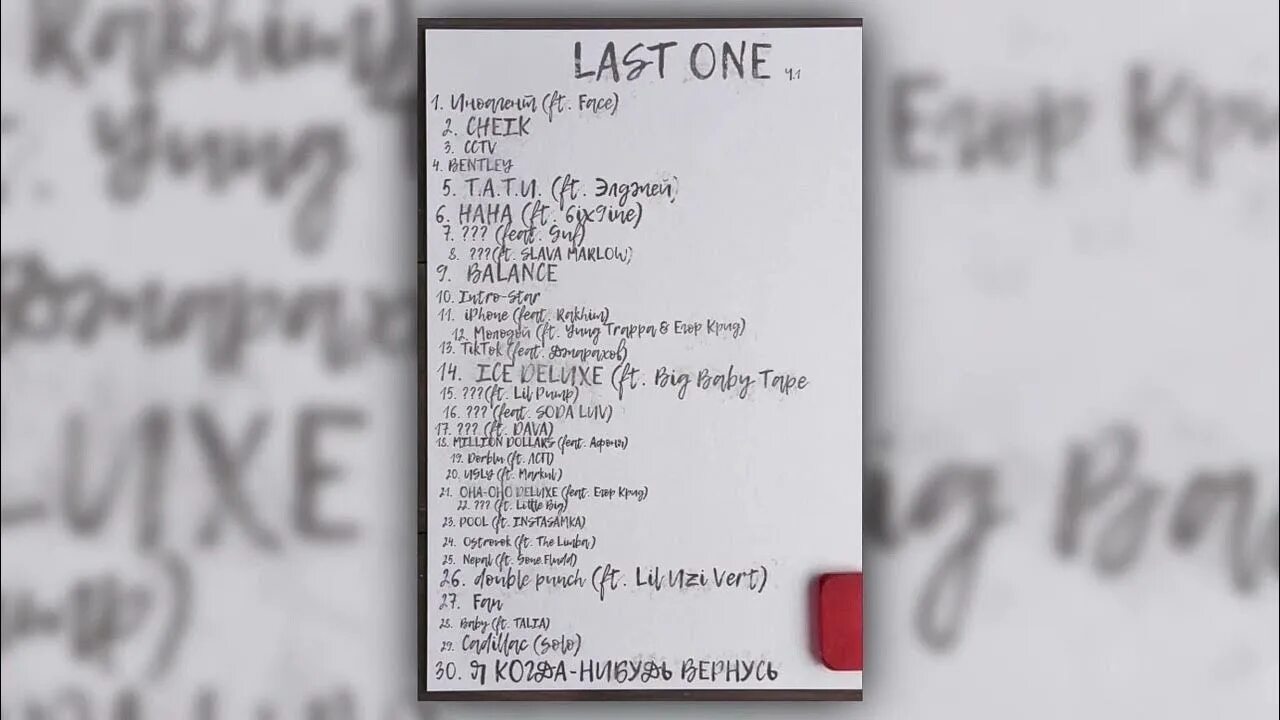 LAST ONE ч.1
1. Иноагент (ft. Face)
2. CHEIK
3. CCTV
4. BENTLEY
5. Т.А.Т.И. (ft. Элджей)
6. HAHA (ft. 6ix9ine)
7. ??? (feat. Guf)
8. ???(ft. SLAVA MARLOW)
9. BALANCE
10. Intro-Star
11. iPhone (feat. Rakhim)
12. Молодой (ft. Yung Trappa & Егор Крид)
13. TikTok (feat. Джарахов)
14. ICE DELUXE (ft. Big Baby Tape
15. ???(ft. Lil Pump)
16. ??? (feat. SODA LUV)
17. ??? (ft. DAVA)
18. MILLION DOLLARS (feat. Афоня)
19. Dorblu (ft. ЛСП)
20. USLY (ft. Markul)
21. ОНА-ОНО DELUXE (feat. Егор Крид)
22. ??? (ft. Little Big)
23. POOL (ft. INSTASAMKA)
24. Ostrovok (ft. The Limba)
25. Nepal (ft. Sone.Fludd)
26. double punch (ft. Lil Uzi Vert)
27. Fan
28. Baby (ft. TALIA)
29. Cadillac (Solo)
30. Я КОГДА-НИБУДЬ ВЕРНУСЬ